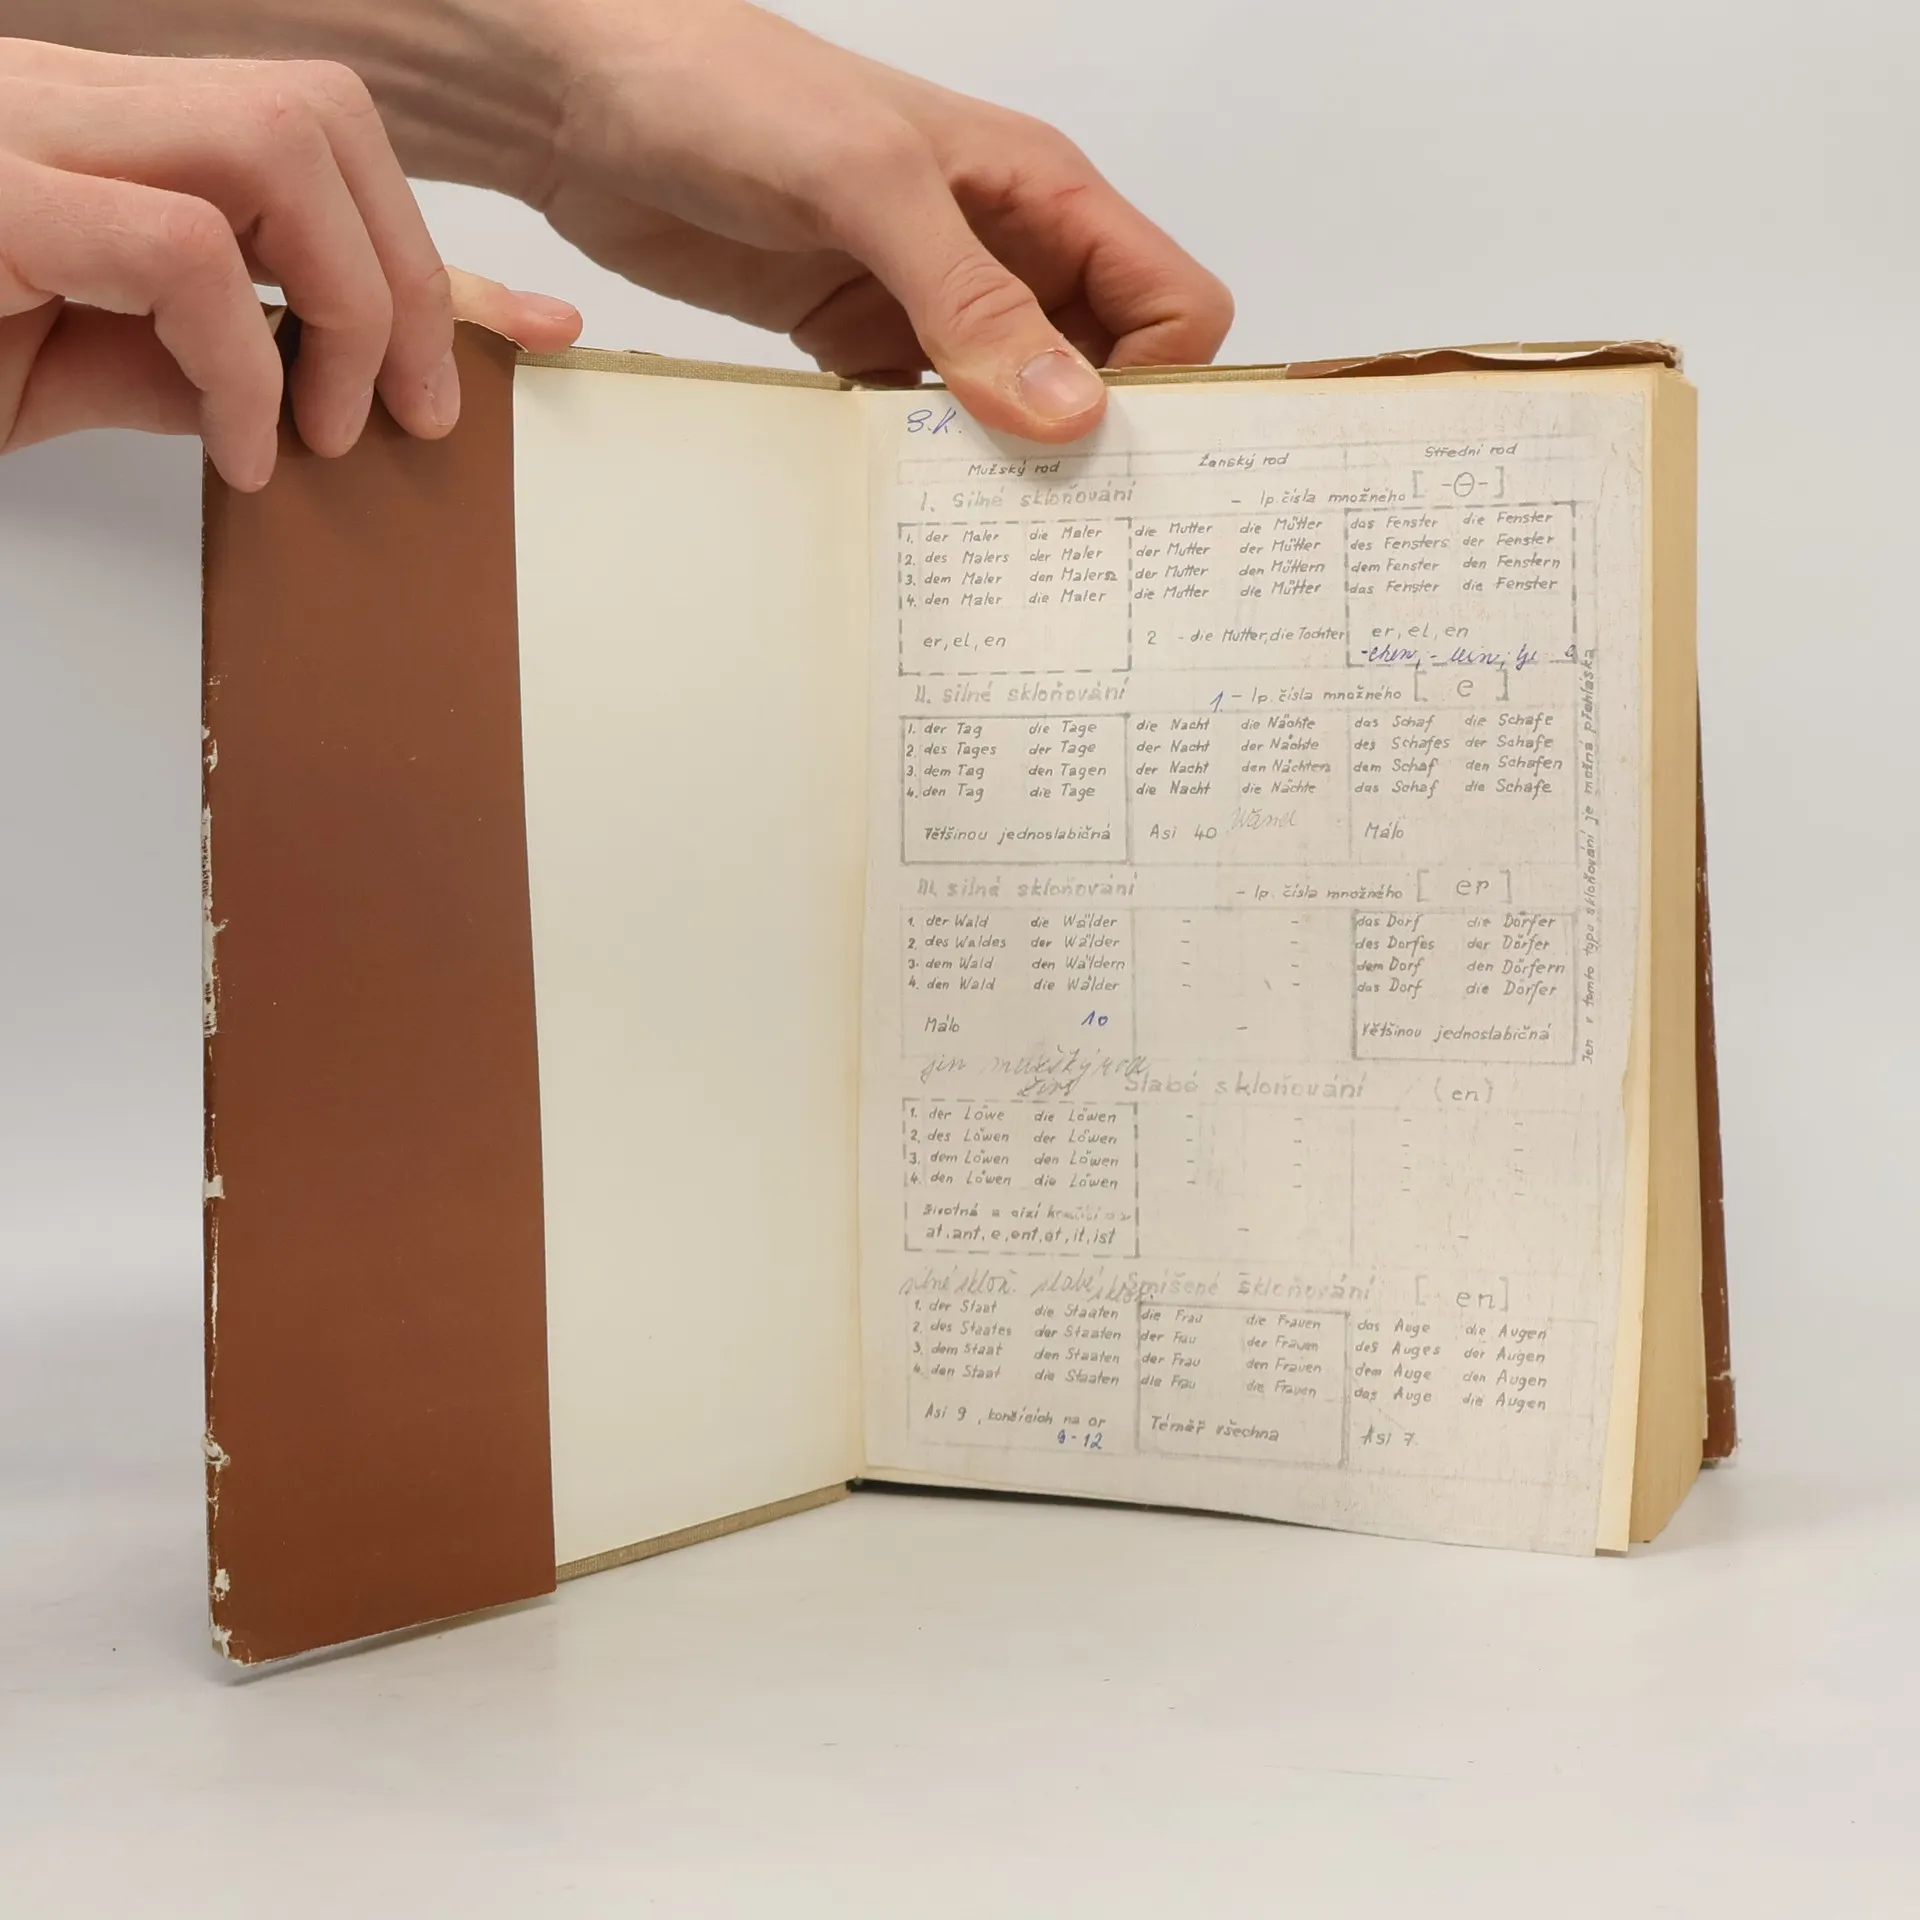 S.K.
Mužský rod Ženský rod Střední rod
I. Silné skloňování - 1p. čísla množného [-Θ-]
1. der Maler die Maler die Mutter die Mütter das Fenster die Fenster
2. des Malers der Maler der Mutter der Mütter des Fensters der Fenster
3. dem Maler den Malern der Mutter den Müttern dem Fenster den Fenstern
4. den Maler die Maler die Mutter die Mütter das Fenster die Fenster
er, el, en 2 - die Mutter, die Tochter er, el, en
-chen, - lein,
II. silné skloňování 1. - 1p. čísla množného [ e ]
1. der Tag die Tage die Nacht die Nächte das Schaf die Schafe
2. des Tages der Tage der Nacht der Nächte des Schafes der Schafe
3. dem Tag den Tagen der Nacht den Nächten dem Schaf den Schafen
4. den Tag die Tage die Nacht die Nächte das Schaf die Schafe
Většinou jednoslabičná Asi 40 Málo
III. silné skloňování - 1p. čísla množného [ er ]
1. der Wald die Wälder - - das Dorf die Dörfer
2. des Waldes der Wälder - - des Dorfes der Dörfer
3. dem Wald den Wäldern - - dem Dorf den Dörfern
4. den Wald die Wälder - - das Dorf die Dörfer
Málo 10 - Většinou jednoslabičná
Jen v tomto typu skloňování je možná přehláska
jen mužský rod
živ.
Slabé skloňování (en)
1. der Löwe die Löwen - - - -
2. des Löwen der Löwen - - - -
3. dem Löwen den Löwen - - - -
4. den Löwen die Löwen - - - -
životná a cizí končící na
at, ant, e, ent, et, it, ist - -
silné skloň. slabé skloň. Smíšené skloňování [ en]
1. der Staat die Staaten die Frau die Frauen das Auge die Augen
2. des Staates der Staaten der Frau der Frauen des Auges der Augen
3. dem Staat den Staaten der Frau den Frauen dem Auge den Augen
4. den Staat die Staaten die Frau die Frauen das Auge die Augen
Asi 9, končících na or Téměř všechna Asi 7.
9-12